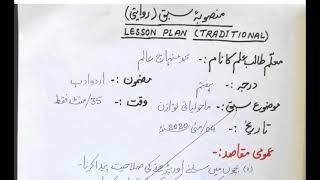 منصوبۂ سبق (روایتی)
LESSON PLAN (TRADITIONAL)
معلّم طالب علم کا نام :- محمد منہاج عالم
درجہ :- ہفتم مضمون :- اردو ادب
موضوعِ سبق :- ماحولیاتی توازن وقت :- 35/منٹ فقط
تاریخ :- 04/مئی 2020ء
عمومی مقاصد :-
(۱) بچوں میں سننے اور پڑھنے کی صلاحیت پیدا کرنا۔